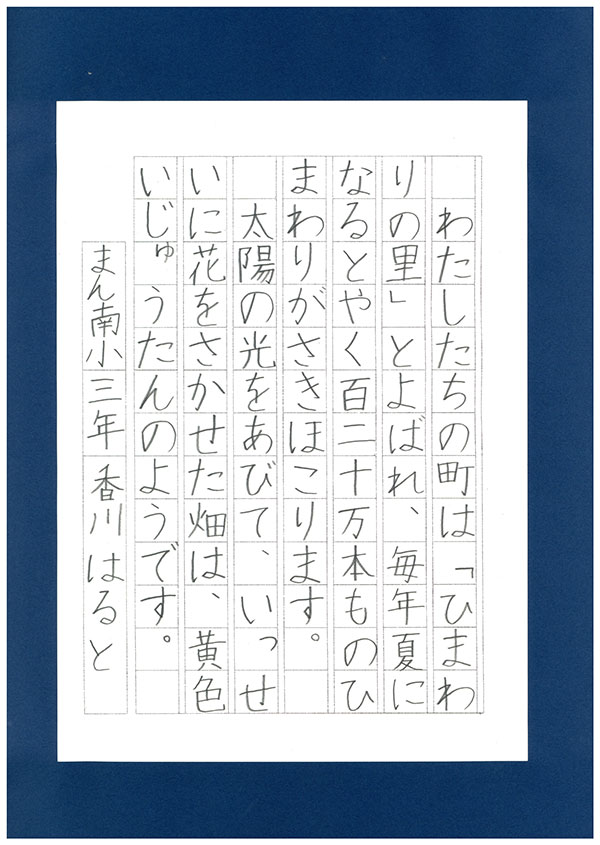 わたしたちの町は「ひまわ
りの里」とよばれ、毎年夏に
なるとやく百二十万本ものひ
まわりがさきほこります。
太陽の光をあびて、いっせ
いに花をさかせた畑は、黄色
いじゅうたんのようです。
まん南小三年香川はると